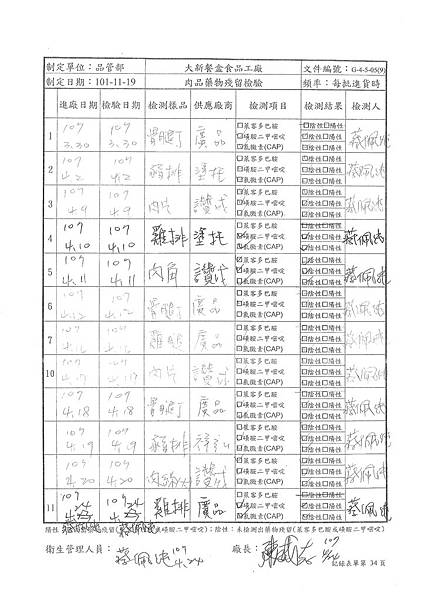 制定單位：品管部 大新餐盒食品工廠 文件編號：G-4-5-05(9)
制定日期：101-11-19 肉品藥物殘留檢驗 頻率：每批進貨時
進廠日期 檢驗日期 檢測樣品 供應廠商 檢測項目 檢測結果 檢測人
1 109 3.30 109 3.30 骨腿丁 廣品 萊客多巴胺 磺酸二甲嘧啶 氯黴素(CAP) 陰性 陽性 陰性 陽性 陰性 陽性 蔡佩純
2 109 4.2 109 4.2 豬排 塗托 萊客多巴胺 磺酸二甲嘧啶 氯黴素(CAP) 陰性 陽性 陰性 陽性 陰性 陽性 蔡佩純
3 109 4.9 109 4.9 肉片 讚成 萊客多巴胺 磺酸二甲嘧啶 氯黴素(CAP) 陰性 陽性 陰性 陽性 陰性 陽性 蔡佩純
4 109 4.10 109 4.10 雞排 塗托 萊客多巴胺 磺酸二甲嘧啶 氯黴素(CAP) 陰性 陽性 陰性 陽性 陰性 陽性 蔡佩純
5 109 4.11 109 4.11 肉角 讚成 萊客多巴胺 磺酸二甲嘧啶 氯黴素(CAP) 陰性 陽性 陰性 陽性 陰性 陽性 蔡佩純
6 109 4.12 109 4.12 骨腿丁 廣品 萊客多巴胺 磺酸二甲嘧啶 氯黴素(CAP) 陰性 陽性 陰性 陽性 陰性 陽性 蔡佩純
7 109 4.16 109 4.16 雞腿 廣品 萊客多巴胺 磺酸二甲嘧啶 氯黴素(CAP) 陰性 陽性 陰性 陽性 陰性 陽性 蔡佩純
10 109 4.17 109 4.17 肉片 讚成 萊客多巴胺 磺酸二甲嘧啶 氯黴素(CAP) 陰性 陽性 陰性 陽性 陰性 陽性 蔡佩純
109 4.18 109 4.18 骨腿丁 廣品 萊客多巴胺 磺酸二甲嘧啶 氯黴素(CAP) 陰性 陽性 陰性 陽性 陰性 陽性 蔡佩純
109 4.19 109 4.19 豬排 萊客多巴胺 磺酸二甲嘧啶 氯黴素(CAP) 陰性 陽性 陰性 陽性 陰性 陽性 蔡佩純
109 4.20 109 4.20 讚成 萊客多巴胺 磺酸二甲嘧啶 氯黴素(CAP) 陰性 陽性 陰性 陽性 陰性 陽性 蔡佩純
11 109 4.24 109 4.24 雞排 廣品 萊客多巴胺 磺酸二甲嘧啶 氯黴素(CAP) 陰性 陽性 陰性 陽性 陰性 陽性 蔡佩純
蔡佩純 蔡佩純
磺酸二甲嘧啶)；陰性：未檢測出藥物殘留(萊客多巴胺或磺酸二甲嘧啶)
衛生管理人員：蔡佩純 109 4.24 廠長： 109 4/24
記錄表單第 34 頁